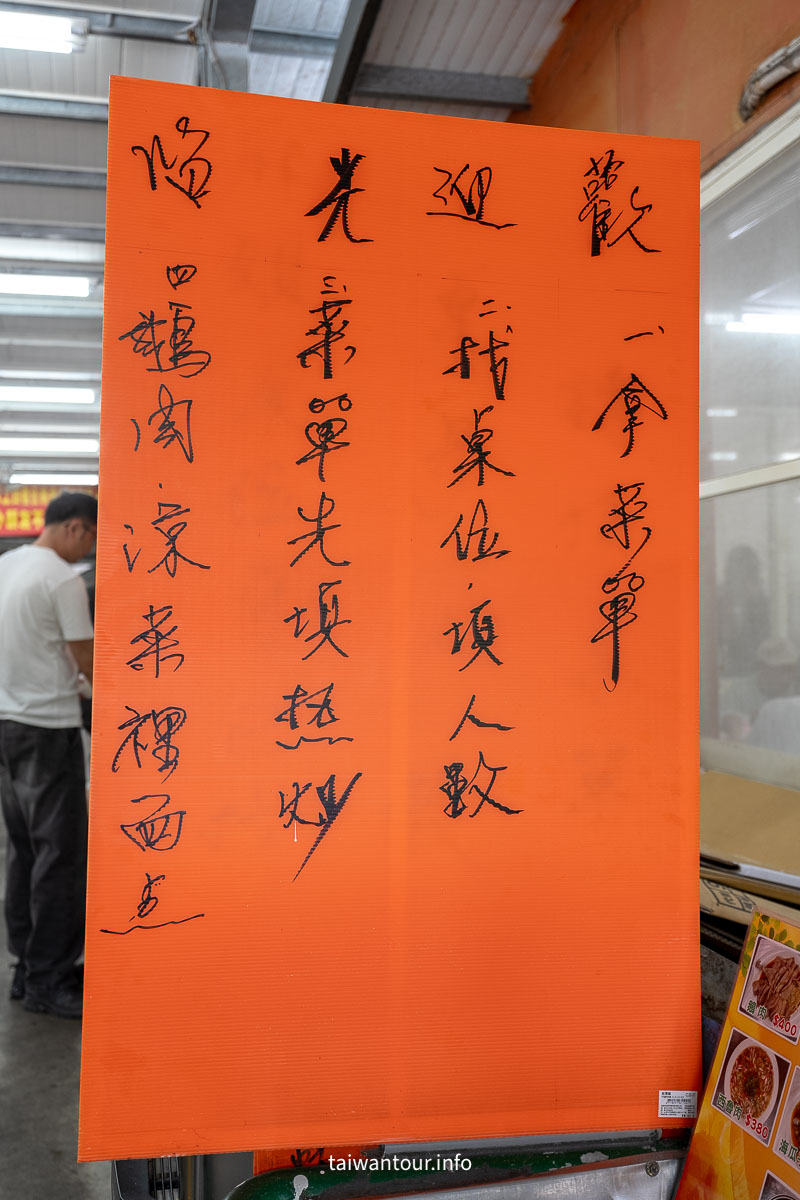 歡迎光臨
一、拿菜單
二、找桌位，填人數
三、菜單先填熱炒
四、鵝肉，涼菜裡面點
鵝肉 $400
西魯肉 $380
海瓜
taiwantour.info